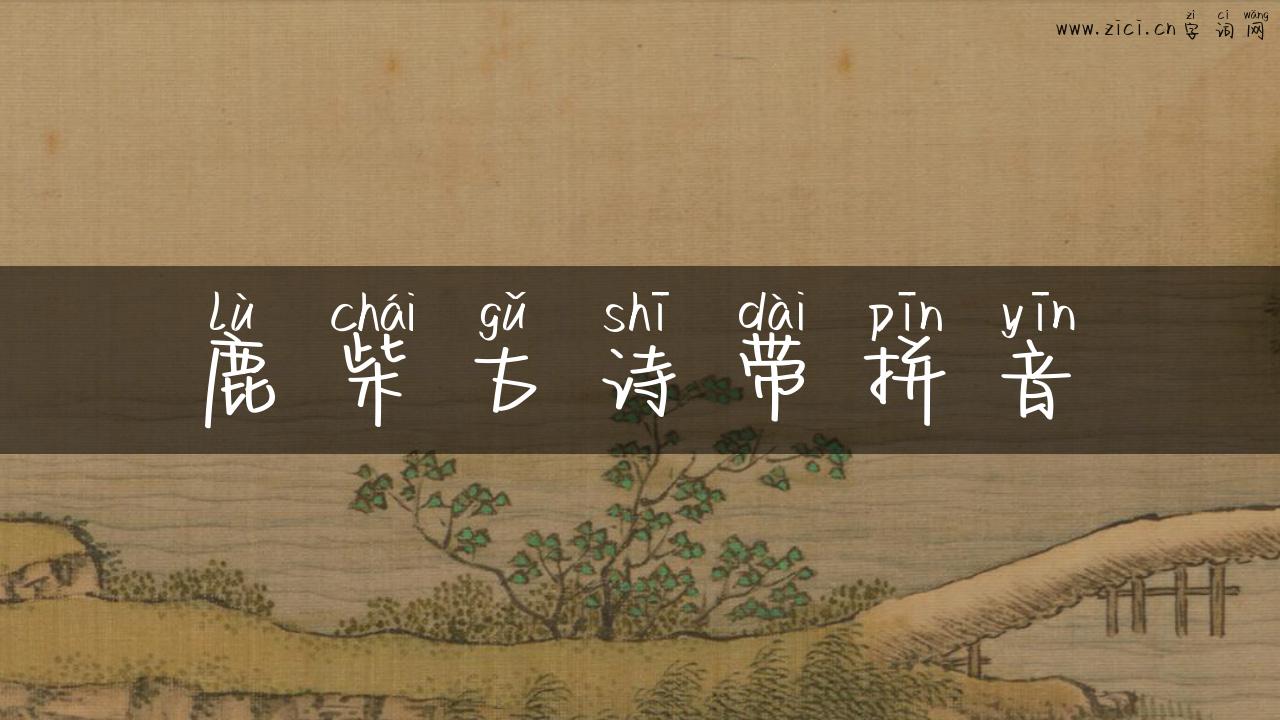 zì cí wǎng
www.zici.cn 字词网
lù chái gǔ shī dài pīn yīn
鹿柴古诗带拼音